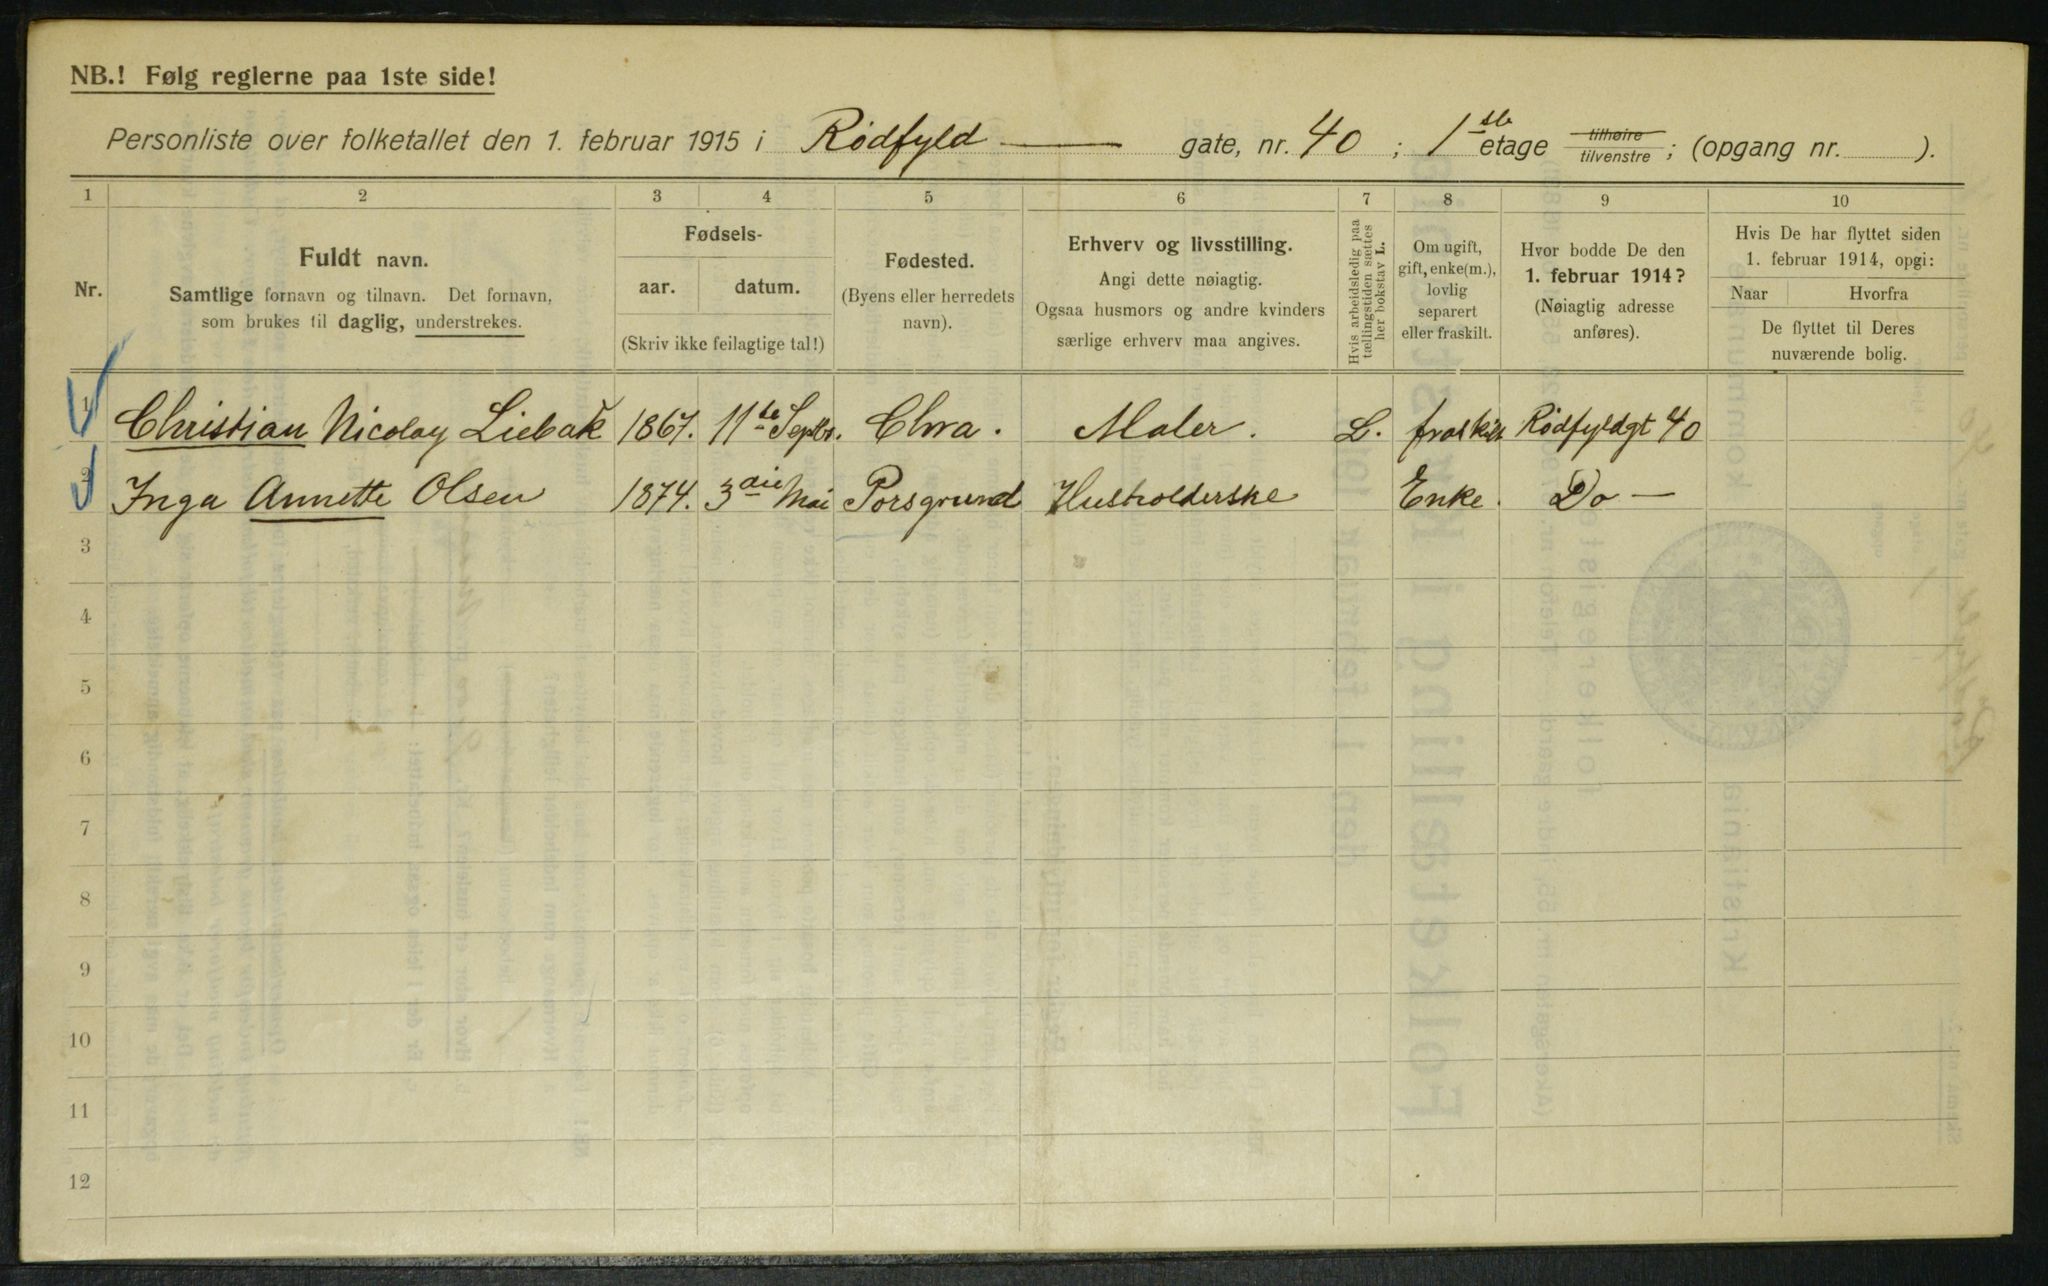 NB.! Følg reglerne paa 1ste side!
Personliste over folketallet den 1. februar 1915 i Rødfyld gate, nr. 40 ; 1ste etage tilhøire tilvenstre ; (opgang nr. ).
1 2 3 4 5 6 7 8 9 10
Nr.
Fuldt navn.
Samtlige fornavn og tilnavn. Det fornavn,
som brukes til daglig, understrekes.
Fødsels-
aar. datum.
(Skriv ikke feilagtige tal!)
Fødested.
(Byens eller herredets
navn).
Erhverv og livsstilling.
Angi dette nøiagtig.
Ogsaa husmors og andre kvinders
særlige erhverv maa angives.
Hvis arbeidsledig paa
tællingstiden sættes
her bokstav L.
Om ugift,
gift, enke(m.),
lovlig
separert
eller fraskilt.
Hvor bodde De den
1. februar 1914?
(Nøiagtig adresse
anføres).
Hvis De har flyttet siden
1. februar 1914, opgi:
Naar Hvorfra
De flyttet til Deres
nuværende bolig.
1 Christian Nicolay Liebak 1867. 11te Septbr. Chra. Maler. L. fraskilt Rødfyldgt 40
2 Inga Annette Olsen 1874. 3die Mai Porsgrund Husholderske Enke. Do —
3
4
5
6
7
8
9
10
11
12